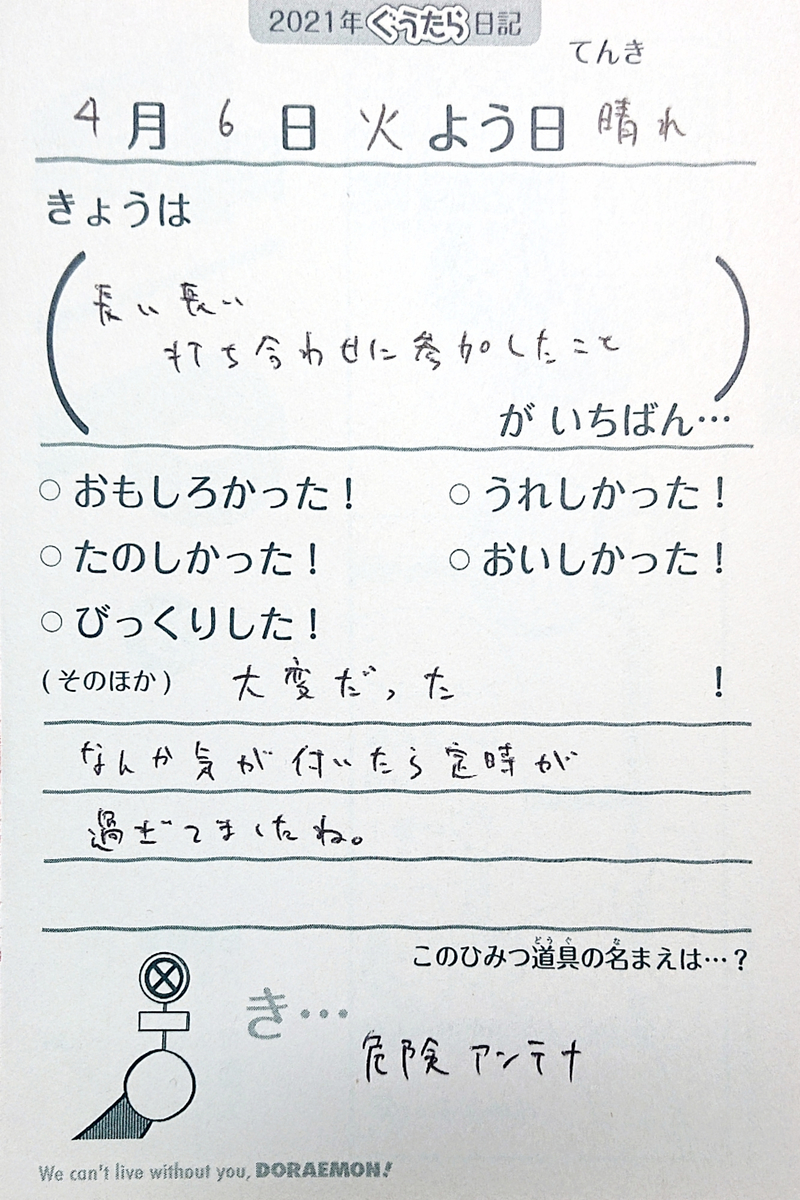 2021年ぐうたら日記
てんき
4月6日火よう日 晴れ
きょうは
長い長い
打ち合わせに参加したこと
がいちばん…
○おもしろかった！ ○うれしかった！
○たのしかった！ ○おいしかった！
○びっくりした！
(そのほか) 大変だった！
なんか気が付いたら定時が
過ぎてましたね。
このひみつ道具の名まえは…？
き…
危険アンテナ
We can't live without you, DORAEMON!